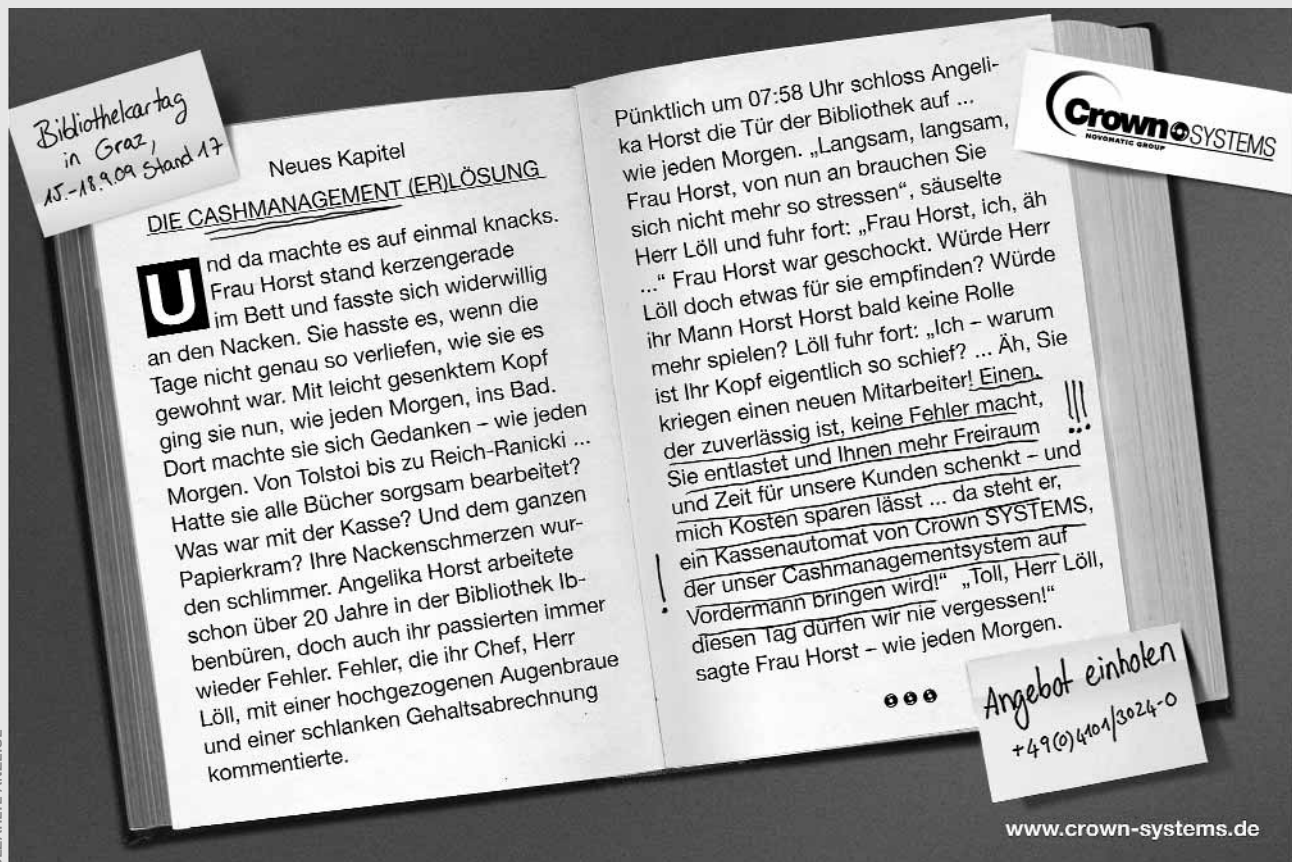 Bibliothekartag
in Graz,
15.-18.9.09 Stand 17
Neues Kapitel
DIE CASHMANAGEMENT (ER)LÖSUNG
Und da machte es auf einmal knacks.
Frau Horst stand kerzengerade
im Bett und fasste sich widerwillig
an den Nacken. Sie hasste es, wenn die
Tage nicht genau so verliefen, wie sie es
gewohnt war. Mit leicht gesenktem Kopf
ging sie nun, wie jeden Morgen, ins Bad.
Dort machte sie sich Gedanken – wie jeden
Morgen. Von Tolstoi bis zu Reich-Ranicki ...
Hatte sie alle Bücher sorgsam bearbeitet?
Was war mit der Kasse? Und dem ganzen
Papierkram? Ihre Nackenschmerzen wur-
den schlimmer. Angelika Horst arbeitete
schon über 20 Jahre in der Bibliothek Ib-
benbüren, doch auch ihr passierten immer
wieder Fehler. Fehler, die ihr Chef, Herr
Löll, mit einer hochgezogenen Augenbraue
und einer schlanken Gehaltsabrechnung
kommentierte.
Pünktlich um 07:58 Uhr schloss Angeli-
ka Horst die Tür der Bibliothek auf ...
wie jeden Morgen. „Langsam, langsam,
Frau Horst, von nun an brauchen Sie
sich nicht mehr so stressen“, säuselte
Herr Löll und fuhr fort: „Frau Horst, ich, äh
...“ Frau Horst war geschockt. Würde Herr
Löll doch etwas für sie empfinden? Würde
ihr Mann Horst Horst bald keine Rolle
mehr spielen? Löll fuhr fort: „Ich – warum
ist Ihr Kopf eigentlich so schief? ... Äh, Sie
kriegen einen neuen Mitarbeiter! Einen,
der zuverlässig ist, keine Fehler macht, !!!
Sie entlastet und Ihnen mehr Freiraum
und Zeit für unsere Kunden schenkt – und
mich Kosten sparen lässt ... da steht er,
! ein Kassenautomat von Crown SYSTEMS,
der unser Cashmanagementsystem auf
Vordermann bringen wird!“ „Toll, Herr Löll,
diesen Tag dürfen wir nie vergessen!“
sagte Frau Horst – wie jeden Morgen.
Crown SYSTEMS
NOVOMATIC GROUP
Angebot einholen
+49(0)4101/3024-0
www.crown-systems.de